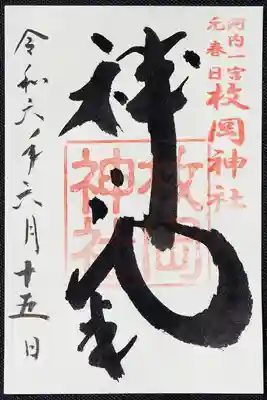 河内一宮
元春日
枚岡神社
枚岡
神社
令和六年六月十五日